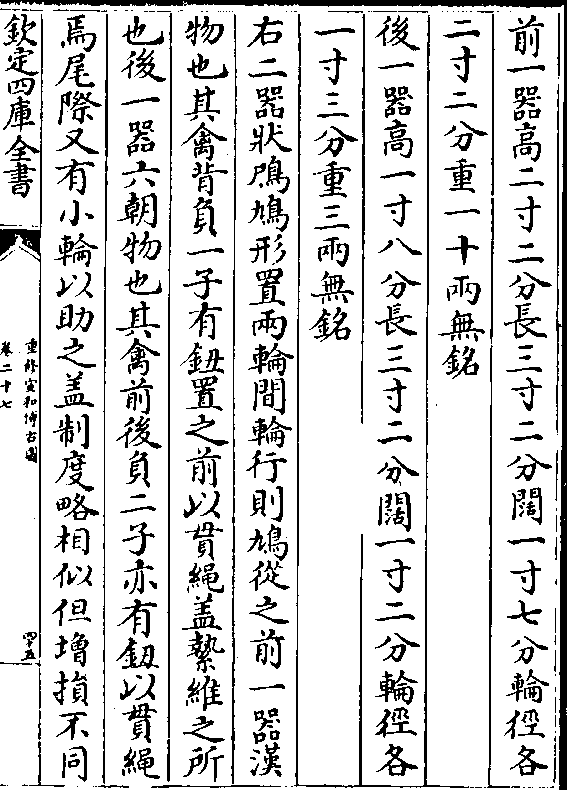 前一器高二寸二分長三寸二分闊一寸七分輪徑各
二寸二分重一十兩無銘
後一器高一寸八分長三寸二分闊一寸二分輪徑各
一寸三分重三兩無銘
右二器狀鳲鳩形置兩輪間輪行則鳩從之前一器漢
物也其禽背負一子有鈕置之前以貫繩盖縶維之所
也後一器六朝物也其禽前後負二子亦有鈕以貫繩
焉尾際又有小輪以助之盖制度略相似但增損不同
欽定四庫全書
重修宣和博古圖
卷二十七
四十五